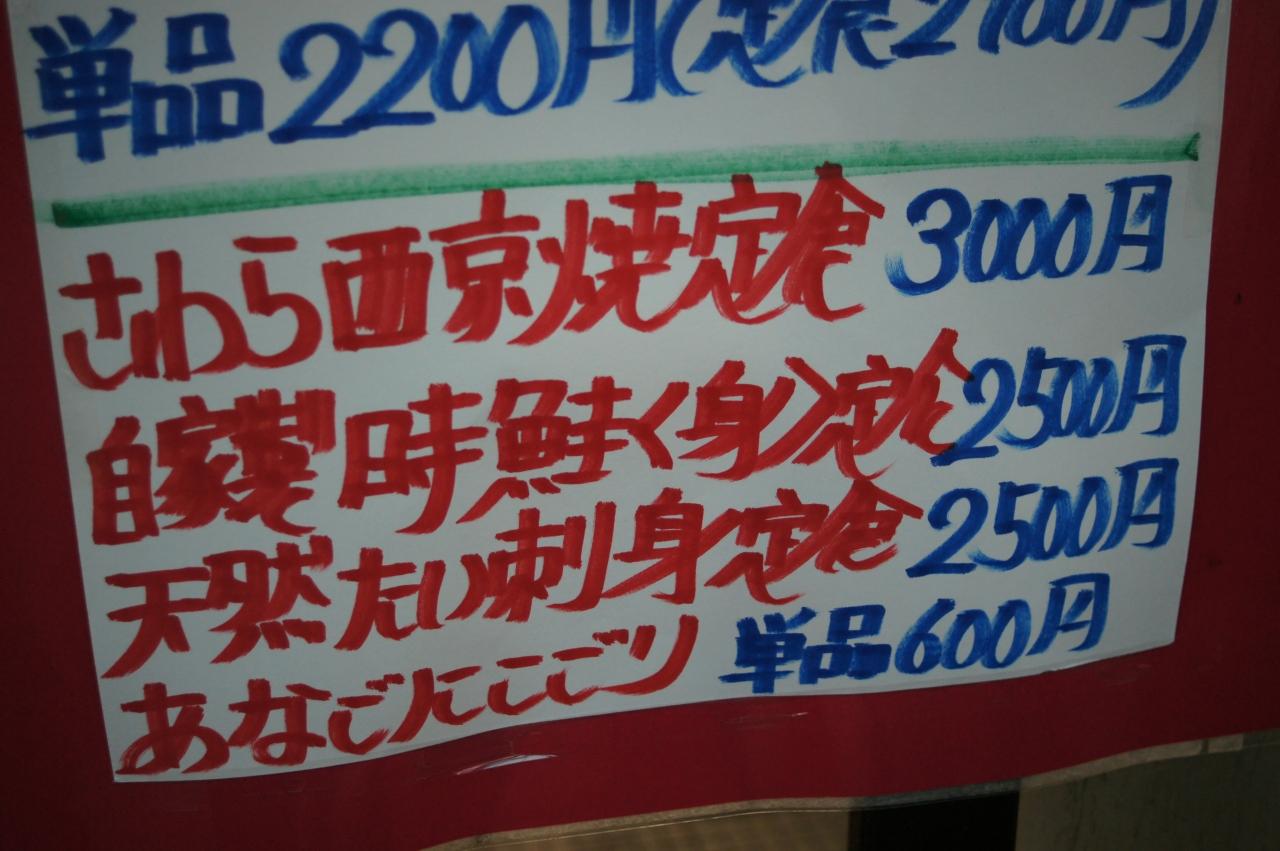 単品2200円(定食2700円)
さわら西京焼定食 3000円
自家製時鮭く身)定食 2500円
天然たい刺身定食 2500円
あなごにこごり 単品600円